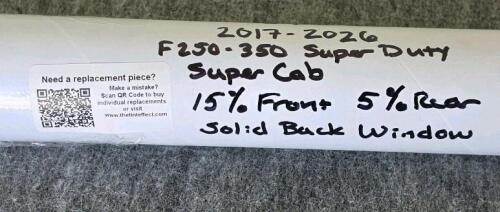 2017-2026
F250-350 Super Duty
Super Cab
15% Front 5% Rear
Solid Back Window
Need a replacement piece?
Make a mistake?
Scan QR Code to buy
individual replacements
or visit
www.thetinteffect.com